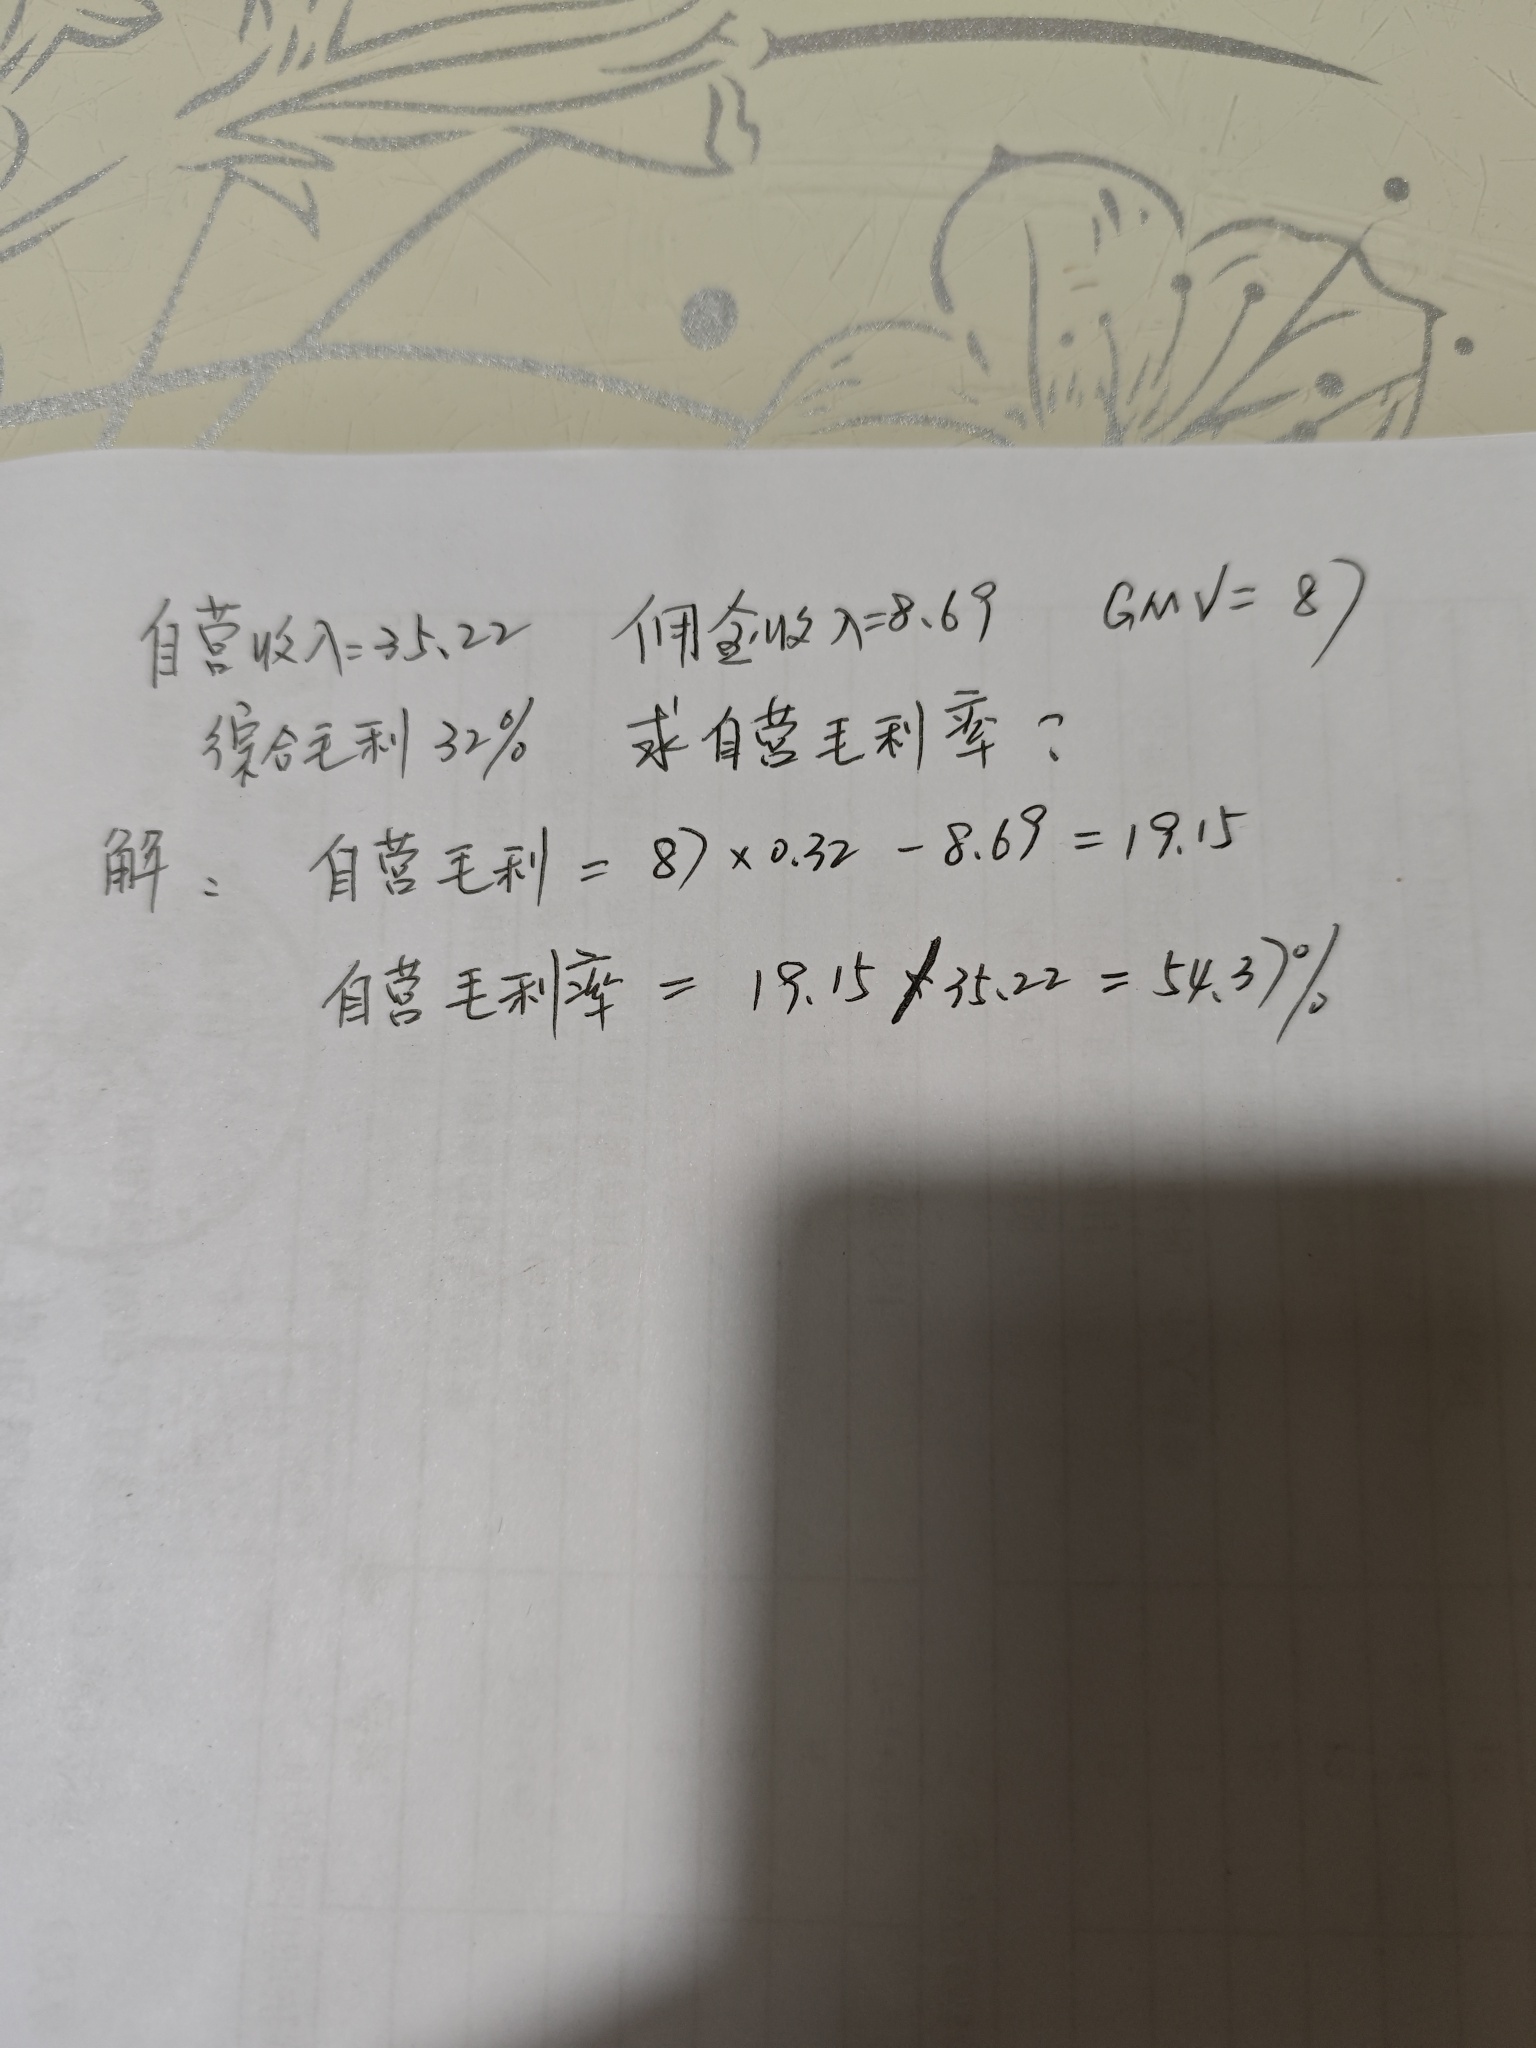 自营收入=35.22 佣金收入=8.69 GMV=87
综合毛利32% 求自营毛利率?
解: 自营毛利 = 87×0.32 - 8.69 = 19.15
自营毛利率 = 19.15 / 35.22 = 54.37%